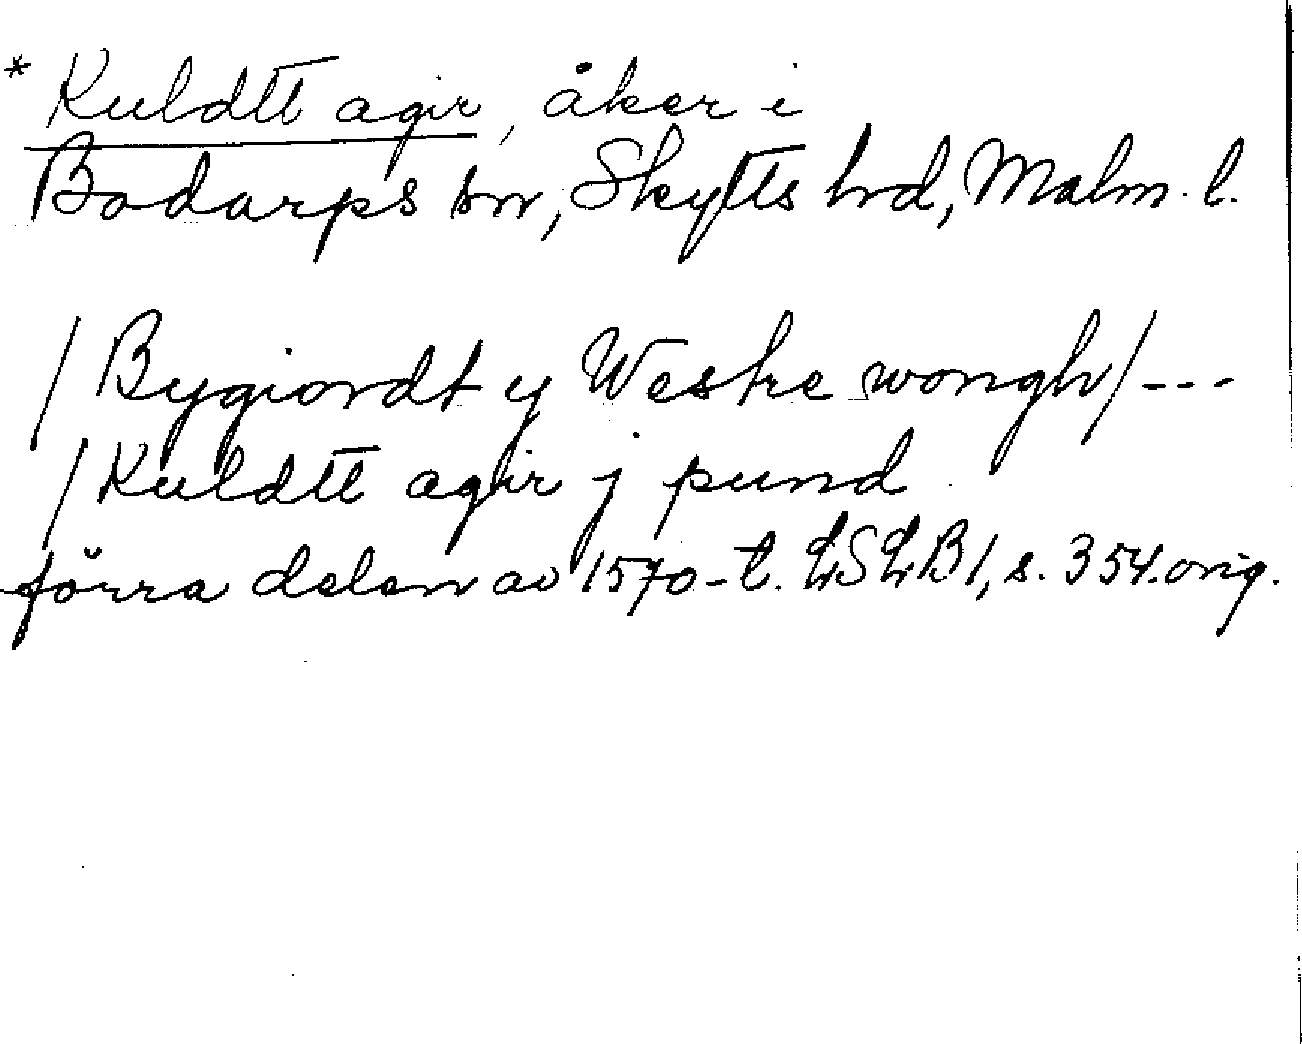 * Kuldtt agir, åker i
Bodarps sn, Skytts hd, Malm. l.
/Bygiordt y Westre wongh/---
/Kuldtt agir j pund
förra delen av 1570-t. LSLB1, s. 354. orig.